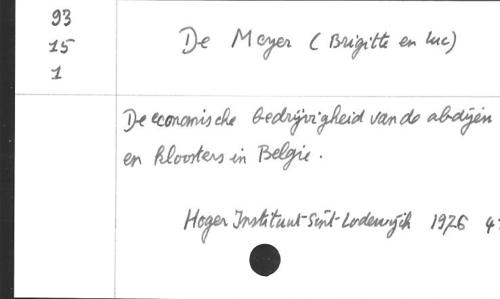 93
15
1
De Meyer (Brigitte en Luc)
De economische bedrijvigheid van de abdijen
en kloosters in Belgie.
Hoger Instituut-Sint-Lodewijk 1976